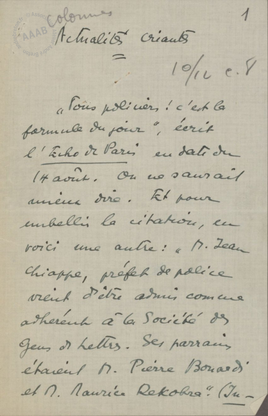 Colonnes
1
AAAB
Actualités criants
10/12 c. 8
„Tous policiers! c'est la
formule du jour", écrit
l'Écho de Paris en date du
14 août. On ne saurait
mieux dire. Et pour
embellir la citation, en
voici une autre: „M. Jean
Chiappe, préfet de police
vient d'être admis comme
adhérent à la Société des
Gens de Lettres. Ses parrains
étaient M. Pierre Bonardi
et M. Maurice Dekobra". (In-